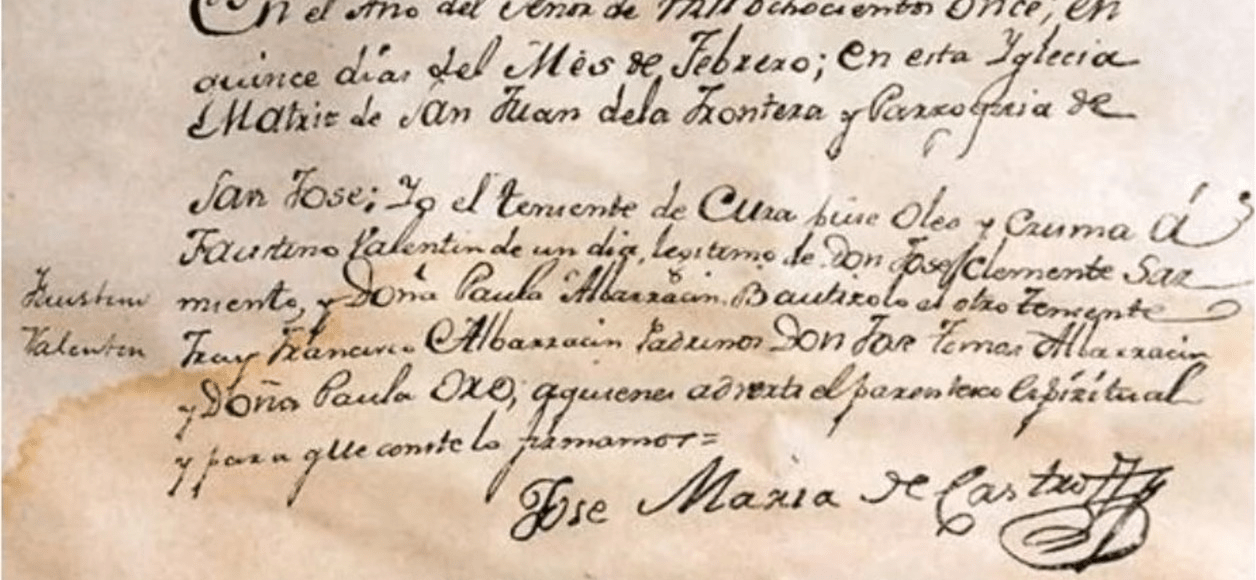 En el Año del Señor de mil ochocientos once; en
quince dias del Mes de Febrero; en esta Yglecia
Matriz de San Juan dela Frontera y Parroquia de
San Jose; Yo el teniente de Cura puse Oleo y Crisma á
Faustino Valentin de un dia, legitimo de Don Jose Clemente Sar
miento, y Doña Paula Albarracin. Bautizolo el otro teniente
Faustino
Valentin
Fray Francisco Albarracin Padrinos Don Jose Tomas Albarracin
y Doña Paula Oro; aquienes adverti el parentesco Espiritual
y para que conste lo firmamos=
Jose Maria de Castro